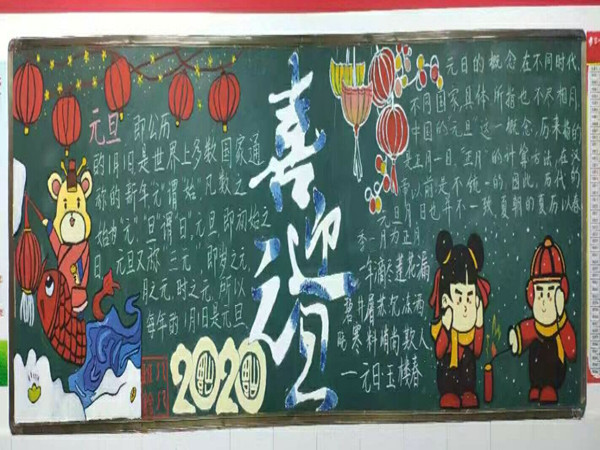 元旦 即公历
的1月1日是世界上多数国家通
称的"新年"元"谓始"凡数之
始为"元""旦"谓"日";元旦"即"初始之
日"元旦又称"三元"即岁之元
月之元,时之元,所以
每年的1月1日是元旦
2020
喜迎元旦
元旦的概念,在不同时代,
不同国家具体所指也不尽相同.
中国的元旦这一概念,历来指的
是正月一日."正月"的计算方法,在汉
以前是不统一的.因此,历代的
元旦月日也并不一致.夏朝的夏历以春
季一月为正月
年滴尽莲花漏
碧井屠苏沉冻酒
晓寒料峭尚欺人
——元日·玉楼春